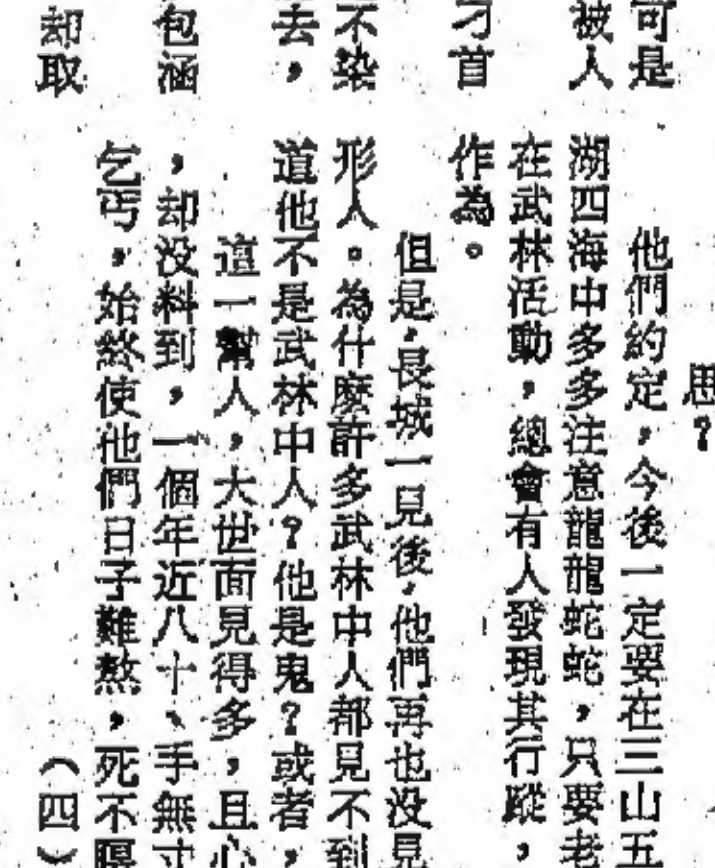 可是
被人
刁首
不染
去，
包涵
却取
思？
他們約定，今後一定要在三山五
湖四海中多多注意龍龍蛇蛇，只要老
在武林活動，總會有人發現其行蹤，
作為。
但是，長城一見後，他們再也没見
形人。為什麽許多武林中人都見不到
道他不是武林中人？他是鬼？或者，
這一幫人，大世面見得多，且心
，却没料到，一個年近八十、手無寸
乞丐，始終使他們日子難熬，死不瞑
（四）